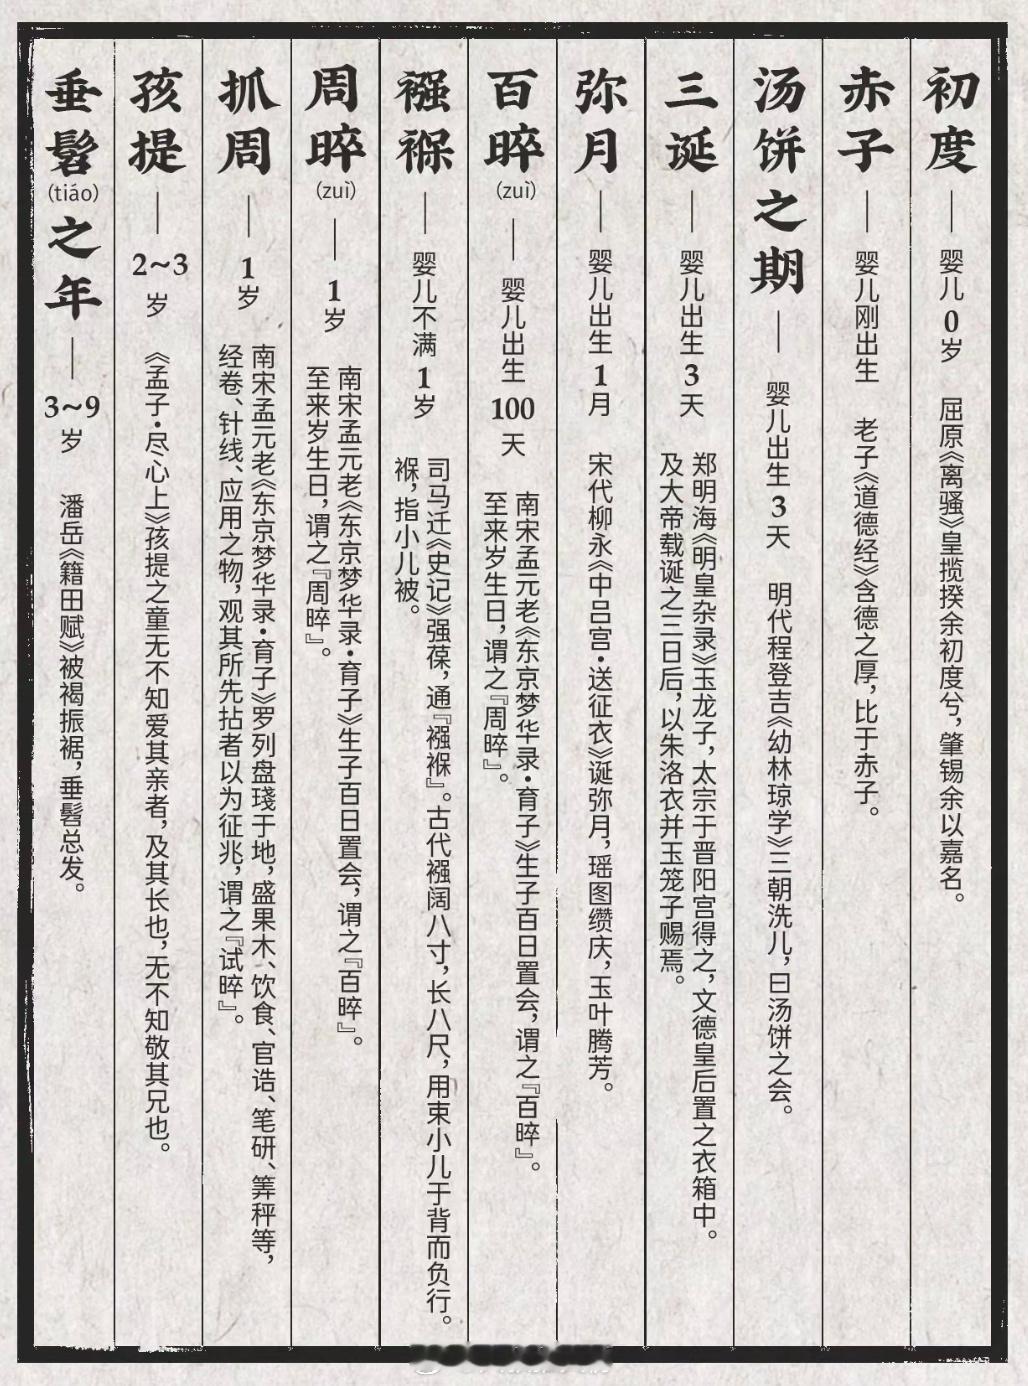 初度——婴儿0岁 屈原《离骚》皇揽揆余初度兮，肇锡余以嘉名。
赤子——婴儿刚出生 老子《道德经》含德之厚，比于赤子。
汤饼之期——婴儿出生3天 明代程登吉《幼林琼学》三朝洗儿，曰汤饼之会。
三诞——婴儿出生3天 郑明海《明皇杂录》玉龙子，太宗于晋阳宫得之，文德皇后置之衣箱中。
及大帝载诞之三日后，以朱洛衣并玉笼子赐焉。
弥月——婴儿出生1月 宋代柳永《中吕宫·送征衣》诞弥月，瑶图缵庆，玉叶腾芳。
百晬(zuì)——婴儿出生100天 南宋孟元老《东京梦华录·育子》生子百日置会，谓之『百晬』。
至来岁生日，谓之『周晬』。
襁褓——婴儿不满1岁 司马迁《史记》强葆，通『襁褓』。古代襁阔八寸，长八尺，用束小儿于背而负行。
褓，指小儿被。
周晬(zuì)——1岁 南宋孟元老《东京梦华录·育子》生子百日置会，谓之『百晬』。
至来岁生日，谓之『周晬』。
抓周——1岁 南宋孟元老《东京梦华录·育子》罗列盘琖于地，盛果木、饮食、官诰、笔研、筭秤等，
经卷、针线、应用之物，观其所先拈者以为征兆，谓之『试晬』。
孩提——2~3岁 《孟子·尽心上》孩提之童无不知爱其亲者，及其长也，无不知敬其兄也。
垂髫(tiáo)之年——3~9岁 潘岳《籍田赋》被褐振裾，垂髫总发。